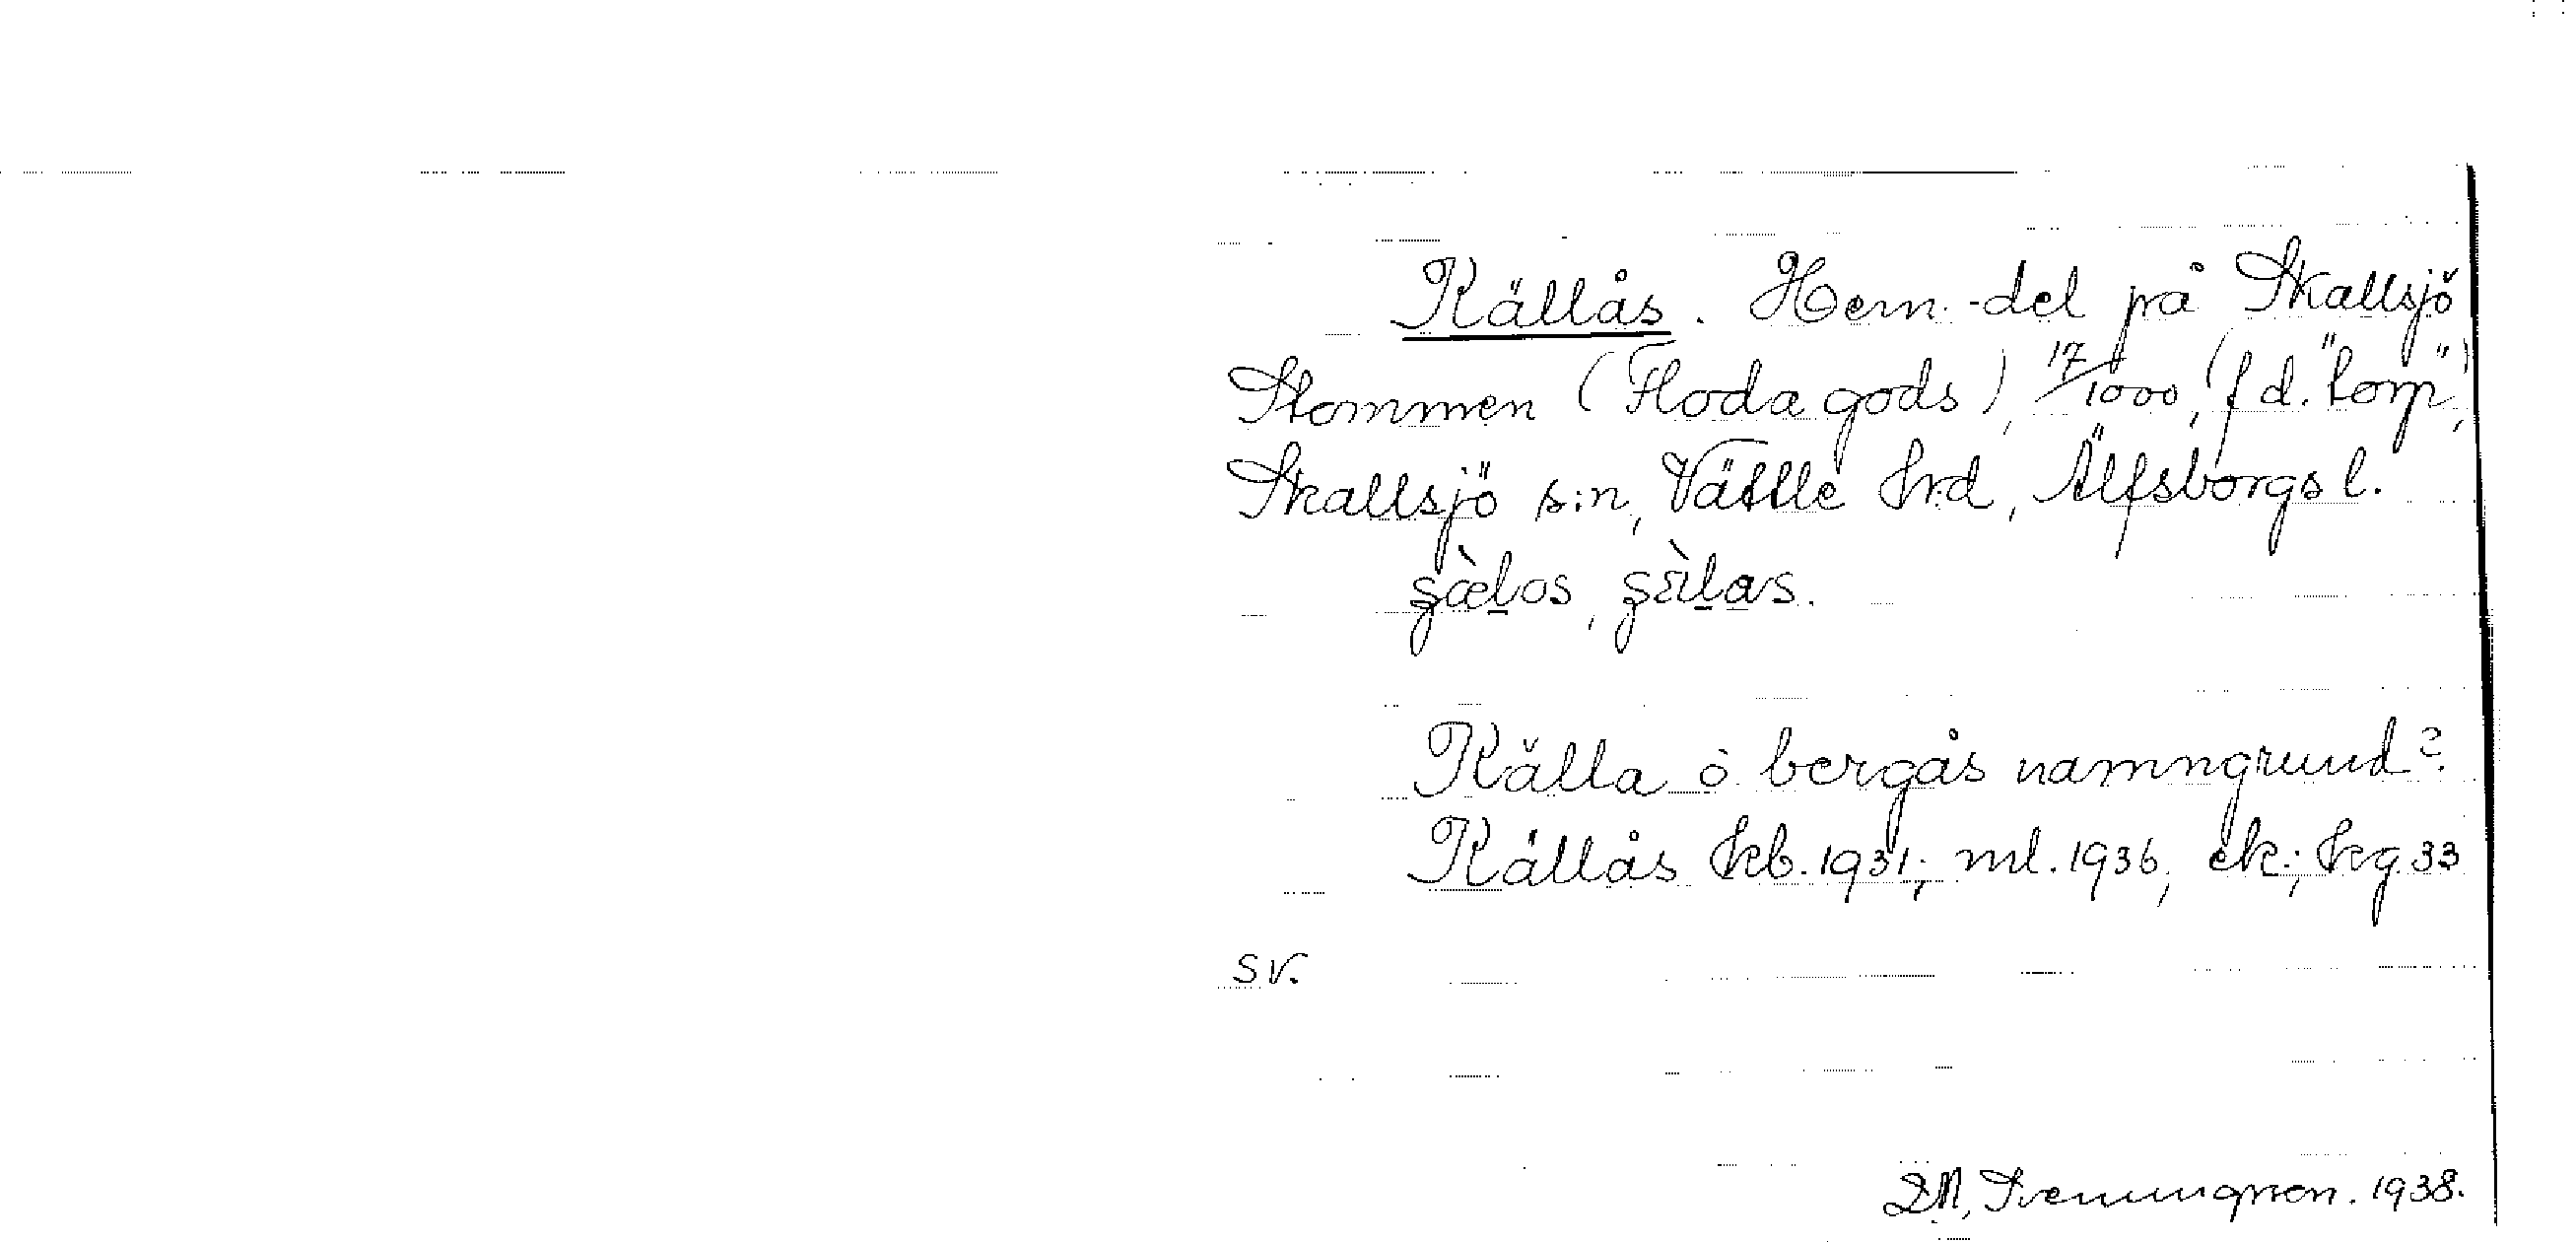 Källås. Hem.-del på Skallsjö
Stommen (Floda gods), 17/1000, (f d. "torp"),
Skallsjö s:n, Vättle hrd, Älfsborgs l.
Källa o bergås namngrund?
Källås kb. 1931; ml. 1936, ek.; kg. 33
SV.
1938.